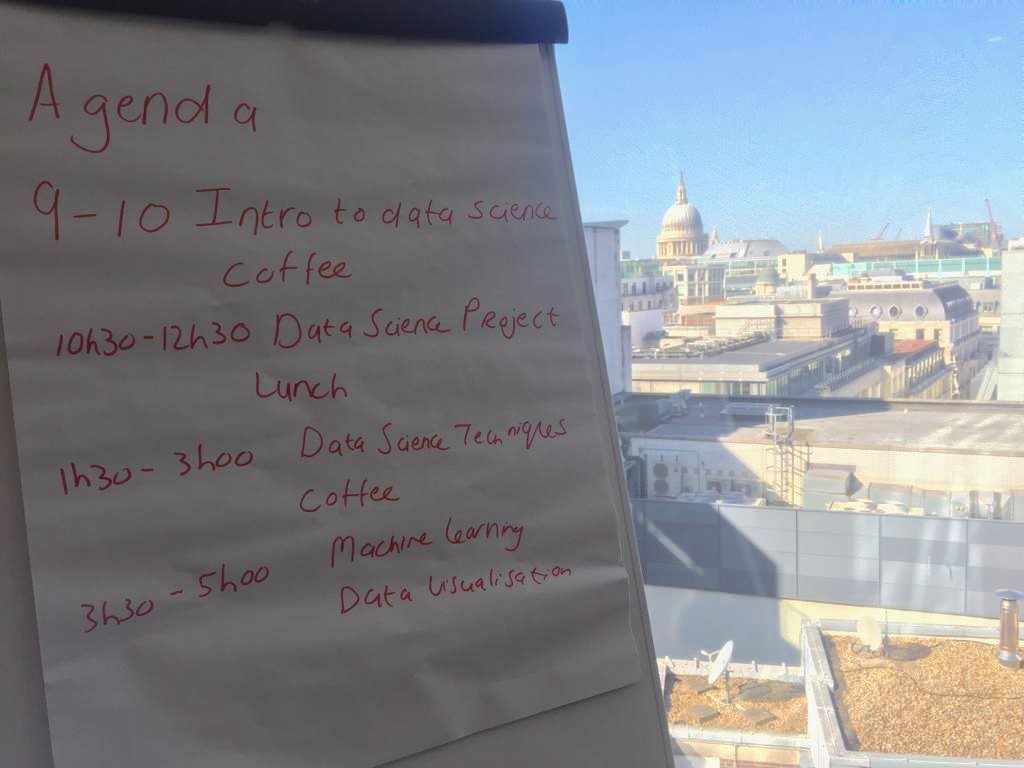 Agenda
9-10 Intro to data science
Coffee
10h30-12h30 Data Science Project
Lunch
1h30-3h00 Data Science Techniques
Coffee
Machine Learning
3h30-5h00 Data Visualisation